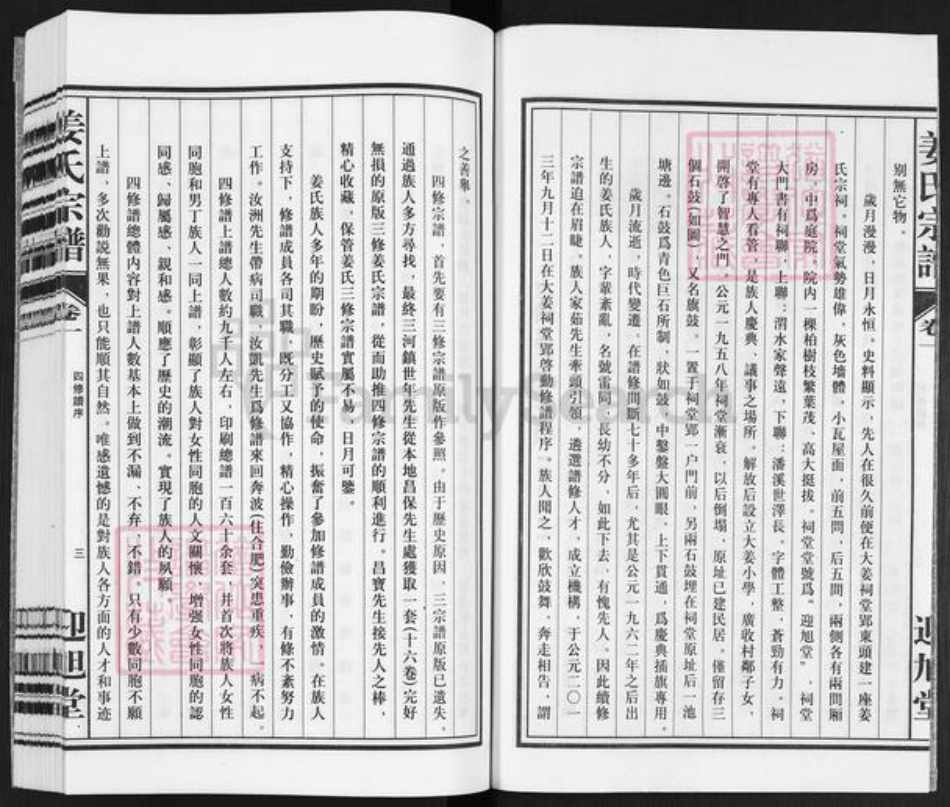 別無它物。
歲月漫漫，日月永恒。史料顯示，先人在很久前便在大姜祠堂郢東頭建一座姜
氏宗祠。祠堂氣勢雄偉，灰色墻體。小瓦屋面，前五間，后五間，兩側各有兩間厢
房，中爲庭院，院内一棵柏樹枝繁葉茂、高大挺拔。祠堂堂號爲“迎旭堂”，祠堂
大門書有祠聯，上聯：渭水家聲遠，下聯：潘溪世澤長。字體工整，蒼勁有力。祠
堂有專人看管，是族人慶典、議事之場所。解放后設立大姜小學，廣收村鄰子女，
開啓了智慧之門。公元一九五八年祠堂漸衰，以后倒塌，原址已建民居。僅留存三
個石鼓(如圖)，又名旗鼓，一置于祠堂郢一户門前，另兩石鼓埋在祠堂原址后一池
塘邊。石鼓爲青色巨石所制，狀如鼓，中鑿盤大圓眼，上下貫通，爲慶典插旗專用。
歲月流逝，時代變遷。在譜修間斷七十多年后，尤其是公元一九六二年之后出
生的姜氏族人，字輩紊亂，名號雷同，長幼不分，如此下去，有愧先人。因此續修
宗譜迫在眉睫。族人家茹先生牽頭引領，遴選譜修人才，成立機構，于公元二〇一
三年九月十二日在大姜祠堂郢啓動修譜程序。族人聞之，歡欣鼓舞。奔走相告，謂
姜氏宗譜
卷一
迎旭堂
之善舉。
四修宗譜，首先要有三修宗譜原版作參照。由于歷史原因，三宗譜原版已遺失。
通過族人多方尋找，最終三河鎮世年先生從本地昌保先生處獲取一套(十六卷)完好
無損的原版三修姜氏宗譜，從而助推四修宗譜的順利進行。昌寶先生接先人之棒，
精心收藏，保管姜氏三修宗譜實屬不易，日月可鑒。
姜氏族人多年的期盼，歷史賦予的使命，振奮了參加修譜成員的激情。在族人
支持下，修譜成員各司其職，既分工又協作，精心操作，勤儉辦事，有條不紊努力
工作。汝洲先生帶病司職，汝凱先生爲修譜來回奔波(住合肥)突患重疾，一病不起。
四修譜上譜總人數約九千人左右，印刷總譜一百六十余套，并首次將族人女性
同胞和男丁族人一同上譜，彰顯了族人對女性同胞的人文關懷，增强女性同胞的認
同感、歸屬感、親和感。順應了歷史的潮流。實現了族人的夙願。
四修譜總體内容對上譜人數基本上做到不漏、不弃、不錯，只有少數同胞不願
上譜，多次勸説無果，也只能順其自然。唯感遺憾的是對族人各方面的人才和事迹
姜氏宗譜
卷一
四修譜序
三
迎旭堂
FamilySearch